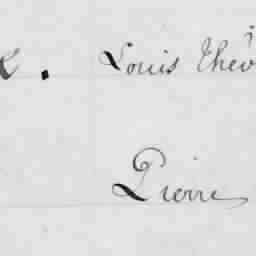 Louis Thév
Pierre